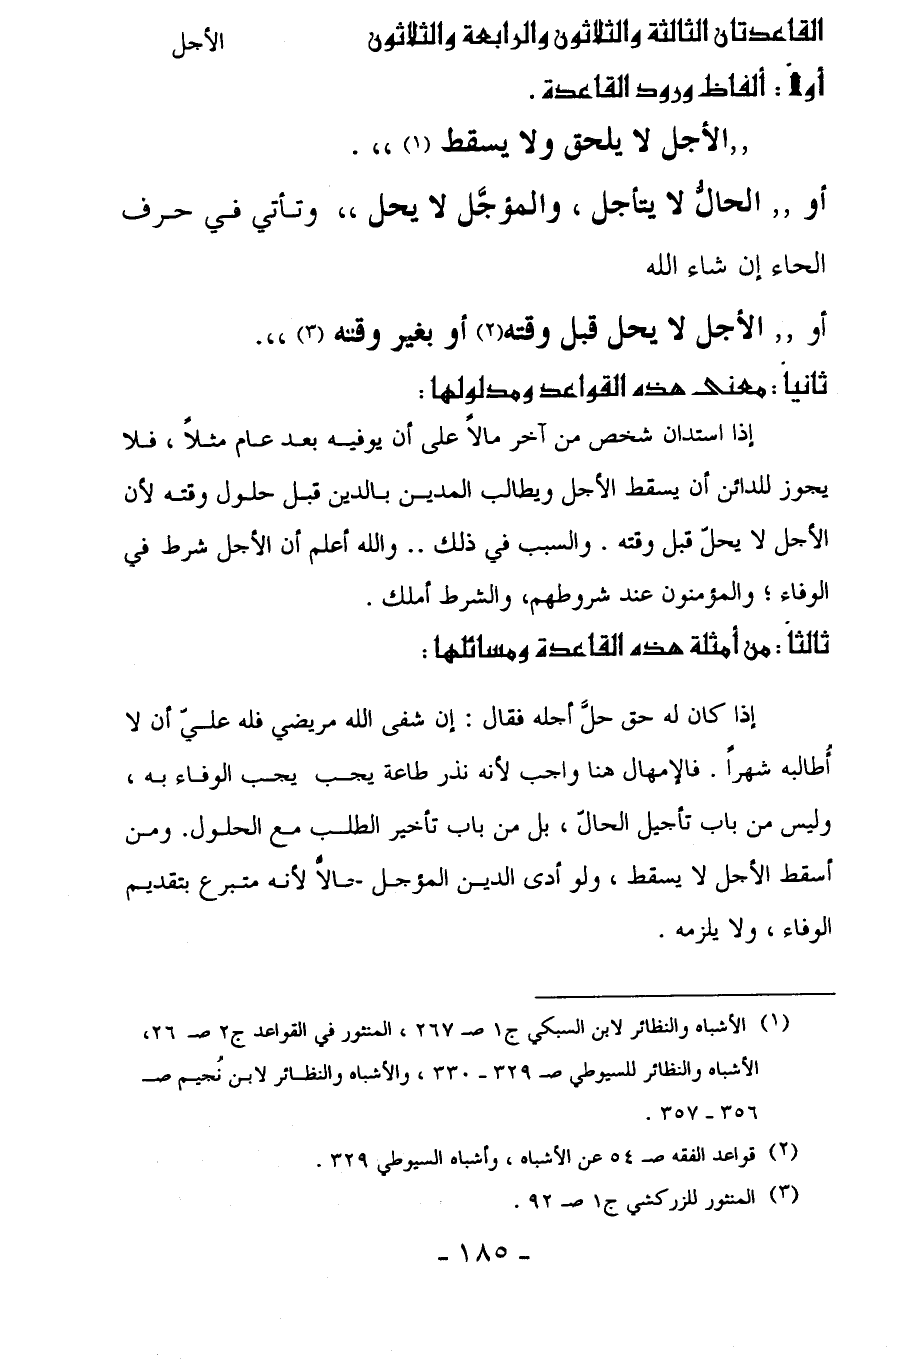 القاعدتان الثالثة والثلاثون والرابعة والثلاثون الأجل
أولاً : ألفاظ ورود القاعدة .
,,الأجل لا يلحق ولا يسقط (١) ،، .
أو ,, الحالُّ لا يتأجل ، والمؤجَّل لا يحل ،، وتأتي في حرف
الحاء إن شاء الله
أو ,, الأجل لا يحل قبل وقته(٢) أو بغير وقته (٣) ،،.
ثانياً : معنى هذه القواعد ومدلولها :
إذا استدان شخص من آخر مالاً على أن يوفيه بعد عام مثلاً ، فلا
يجوز للدائن أن يسقط الأجل ويطالب المدين بالدين قبل حلول وقته لأن
الأجل لا يحلّ قبل وقته . والسبب في ذلك .. والله أعلم أن الأجل شرط في
الوفاء ؛ والمؤمنون عند شروطهم، والشرط أملك .
ثالثاً : من أمثلة هذه القاعدة ومسائلها :
إذا كان له حق حلَّ أجله فقال : إن شفى الله مريضي فله عليّ أن لا
أُطالبه شهراً . فالإمهال هنا واجب لأنه نذر طاعة يجب يجب الوفاء به ،
وليس من باب تأجيل الحالّ ، بل من باب تأخير الطلب مع الحلول. ومن
أسقط الأجل لا يسقط ، ولو أدى الدين المؤجل حالاًّ لأنه متبرع بتقديم
الوفاء ، ولا يلزمه .
(١) الأشباه والنظائر لابن السبكي ج١ صـ ٢٦٧ ، المنثور في القواعد ج٢ صـ ٢٦،
الأشباه والنظائر للسيوطي صـ ٣٢٩ ـ ٣٣٠ ، والأشباه والنظائر لابن نُجيم صـ
٣٥٦ ـ ٣٥٧ .
(٢) قواعد الفقه صـ ٥٤ عن الأشباه ، وأشباه السيوطي ٣٢٩ .
(٣) المنثور للزركشي ج١ صـ ٩٢ .
- ١٨٥ -